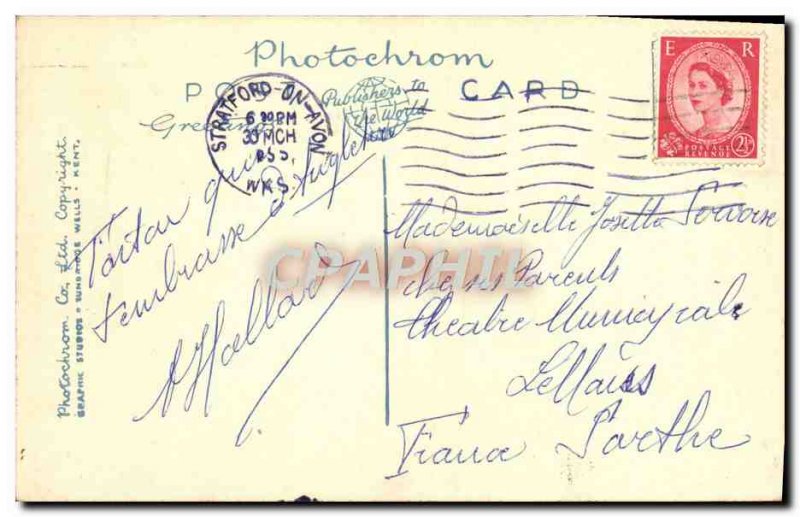 Photochrom
POST CARD
Greetings
Publishers to
the World
STRATFORD-ON-AVON
6 30 PM
30 MCH
1955
WKS.
E R
POSTAGE
REVENUE
2½
Tonton qui
t'embrasse d'Angleterre
Mademoiselle Josette
chez ses Parents
Théatre Municipale
Le Mans
France Sarthe
Photochrom Co., Ltd. Copyright.
GRAPHIC STUDIOS • TUNBRIDGE WELLS • KENT.
CPAPHIL